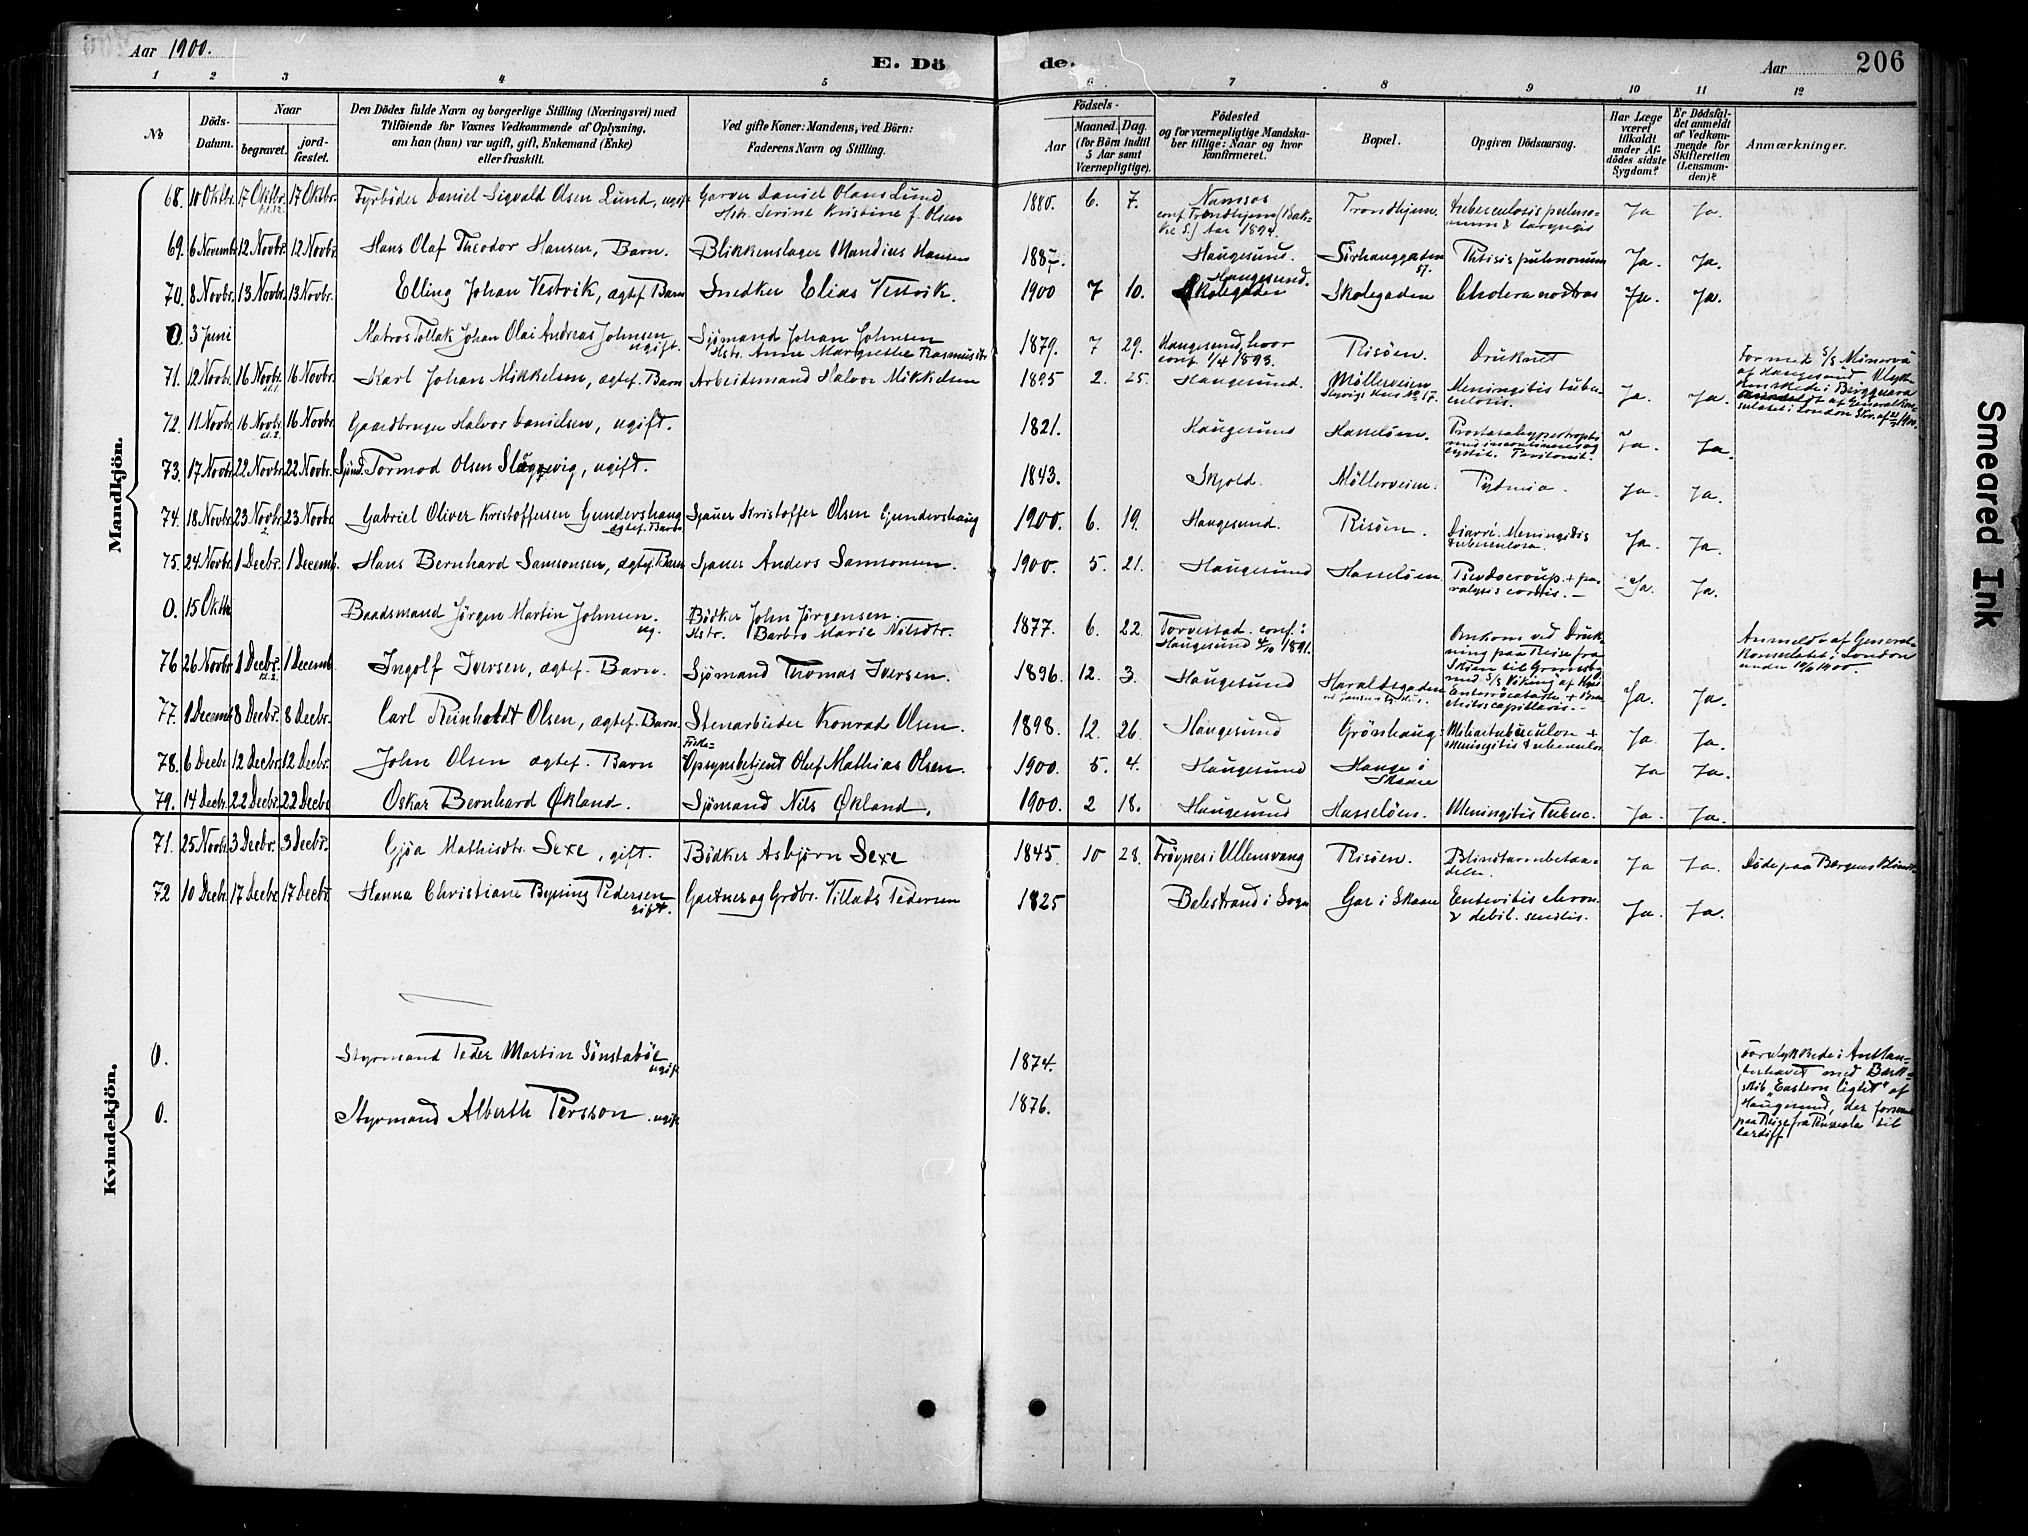 Aar 1900.
E. Dö
de.
Aar
206
1 2 3 4 5 6 7 8 9 10 11 12
No
Döds-
Datum.
Naar
begravet.
jord-
fæstet.
Den Dödes fulde Navn og borgerlige Stilling (Næringsvei) med
Tilföiende for Voxnes Vedkommende af Oplysning,
om han (hun) var ugift, gift, Enkemand (Enke)
eller fraskilt.
Ved gifte Koner: Mandens, ved Börn:
Faderens Navn og Stilling.
Födsels-
Aar
Maaned. Dag.
(for Börn indtil
5 Aar samt
Værnepligtige).
Födested
og for værnepligtige Mandska-
ber tillige: Naar og hvor
konfirmeret.
Bopæl.
Opgiven Dödsaarsag.
Har Læge
været
tilkaldt
under Af-
dödes sidste
Sygdom?
Er Dödsfal-
det anmeldt
af Vedkom-
mende for
Skifteretten
(Lensman-
den)?
Anmærkninger.
Mandkjön.
68. 10 Oktbr. 17 Oktbr. 17 Oktbr. Fyrböder Daniel Sigvald Olsen Lund, ugift Garver Daniel Olaus Lund
Hstr. Serine Kristine f. Olsen 1880. 6. 7. Namsos
conf. Trondhjem (Bak-
ke S.) Aar 1894. Trondhjem. tuberculosis pulmo-
num & laryngis Ja Ja.
69. 6 Novembr 12 Novbr. 12 Novbr. Hans Olaf Theodor Hansen, Barn. Blikkenslager Mandius Hansen 1887 Haugesund. Sörhauggaden Phtisis pulmonum Ja. Ja.
70. 8 Novbr. 13 Novbr. 13 Novbr. Elling Johan Vestvik, ægtef Barn Snedker Elias Vestvik. 1900 7 10. Haugesund.
Skolegaden Skolegaden Cholera nostras Ja. Ja.
0. 3 Juni Matros Tollak Johan Olai Andreas Johnsen
ugift. Sjömand Johan Johnsen
Hstr. Anne Margrethe Rasmusdtr 1879. 7 29. Haugesund, hvor
conf. 1/4 1893. Risöen. Druknet
For med S/S Minerva
af Haugesund
71. 12 Novbr. 16 Novbr. 16 Novbr. Karl Johan Mikkelsen, ægtef. Barn Arbeidsmand Halvor Mikkelsen 1895 2. 25. Haugesund. Möllerveien Meningitis tuber-
culosis. Ja. Ja.
72. 11 Novbr. 16 Novbr. 16 Novbr. Gaardbruger Halvor Danielsen, ugift. 1821. Haugesund Hasselöen. Ja. Ja.
73. 17 Novbr. 22 Novbr. 22 Novbr. Sjömd. Tormod Olsen ugift. 1843. Skjold. Möllerveien. Pyæmia. Ja. Ja.
74. 18 Novbr. 23 Novbr. 23 Novbr. Gabriel Oliver Kristoffersen Gundershaug
ægtef. Barn Sjauer Kristoffer Olsen Gundershaug 1900. 6. 19. Haugesund. Risöen. Diarré. Meningitis
tuberculosa. Ja. Ja.
75. 24 Novbr. 1 Decbr. 1 Decemb. Hans Bernhard Samsonsen, ægtef. Barn Sjauer Anders Samsonsen. 1900. 5. 21. Haugesund Hasselöen Pseudocroup + pa-
ralysis cordis. Ja. Ja.
0. 15 Oktbr Baadsmand Jörgen Martin Johnsen.
ug. Bödker John Jörgensen.
Hstr. Barbro Marie Nilsdtr. 1877. 6. 22. Torvestad. conf. i
Haugesund 4/10 1891. Omkom ved Druk-
ning paa Reise fra
Skien til Grimsby
med S/S Viking af
Anmeldt af General-
konsulatet i London
76 26 Novbr. 1 Decbr. 1 Decemb. Ingolf Iversen, ægtef. Barn. Sjömand Thomas Iversen. 1896. 12. 3. Haugesund Haraldsgaden Ja. Ja.
77. 1 Decemb 8 Decbr. 8 Decbr. Carl Reinholdt Olsen, ægtef. Barn. Stenarbeider Konrad Olsen. 1898. 12. 26. Haugesund Grönhaug. Miliærtuberculose +
Meningitis tuberculos Ja. Ja.
78. 6 Decbr 12 Decbr. 12 Decbr. John Olsen ægtef. Barn Fiske-
Opsynsbetjent Oluf Mathias Olsen. 1900. 5. 4. Haugesund Hauge i
Skaare Ja Ja.
79. 14 Decbr. 22 Decbr. 22 Decbr Oskar Bernhard Økland. Sjömand Nils Økland. 1900. 2 18. Haugesund Hasselöen. Meningitis Tuberc. Ja. Ja.
Kvindekjön.
71. 25 Novbr. 3 Decbr. 3 Decbr. Gjöa Mathisdtr. Sexe, gift. Bödker Asbjörn Sexe 1845. 10 28. Fröynes i Ullensvang Risöen. Blindtarmbetæn-
delse. Ja Ja. Döde paa Bergens
72 10 Decbr. 17 Decbr. 17 Decbr. Hanna Christiane Pedersen
gift. Gartner og Grdbr. Villads Pedersen 1825 Balestrand i Sogn Gar i Skaare Enteritis chron.
& debil. senilis. Ja. Ja.
0. Styrmand Peder Martin Sönstaböe
ugift 1874.
0. Styrmand Alberth Persson. ugift 1876.
Forulykkede i Atlan-
terhavet med Bark-
skib "Eastern Light" af
Haugesund, der forsv.
paa Reise fra Pensacola til
Cardiff
Smeared Ink